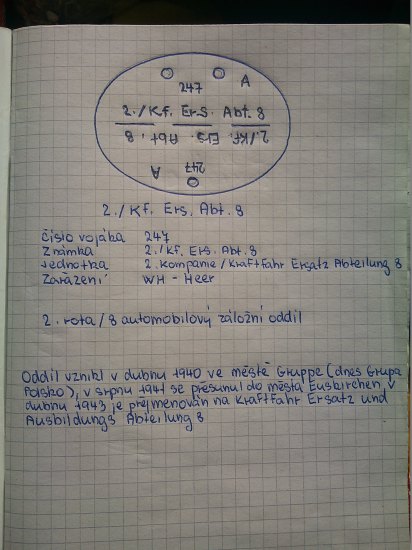 247 A
2./Kf. Ers. Abt. 8
2./Kf. Ers. Abt. 8
247 A
2./Kf. Ers. Abt. 8
číslo vojáka 247
Známka 2./Kf. Ers. Abt. 8
Jednotka 2. Kompanie/Kraftfahr Ersatz Abteilung 8
Zařazení WH - Heer
2. rota/8 automobilový záložní oddíl
Oddíl vznikl v dubnu 1940 ve městě Gruppe (dnes Grupa
Polsko), v srpnu 1941 se přesunul do města Euskirchen, v
dubnu 1943 je přejmenován na Kraftfahr Ersatz und
Ausbildungs Abteilung 8